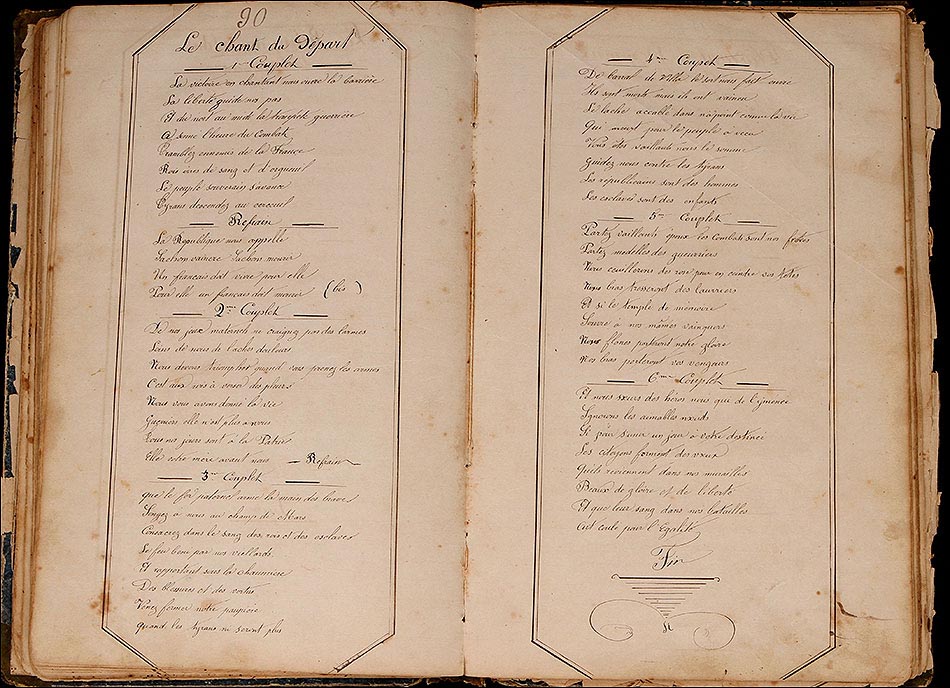 90
Le chant du Départ
1er Couplet
La victoire en chantant nous ouvre la barrière
La liberté guide nos pas
Et du nord au midi la trompette guerrière
A sonné l'heure du Combat
Tremblez ennemis de la France
Rois ivres de sang et d'orgueuil
Le peuple souverain s'avance
Tyrans descendez au cercueil
Refrain
La République nous appelle
Sachson vaincre Sachons mourir
Un français doit vivre pour elle
Pour elle un français doit mourir (bis)
2me Couplet
De nos yeux maternels ne craignez pas des larmes
Loins de nous de laches douleurs
Nous devons triompher quand vous prenez les armes
C'est aux rois à verser des pleurs
Nous vous avons donné la vie
Guerriers elle n'est plus a vous
Tous nos jours sont à la Patrie
Elle votre mere avant nous Refrain
3me Couplet
que le fer paternel arme la main des braves
Songez à nous au champ de Mars
Consacrez dans le sang des rois et des esclaves
Le fer beni par nos vieillards
Et rapportant sous la chaumiere
Des blessures et des vertus
Venez fermer notre paupière
quand les tyrans ne seront plus
4me Coupet
De barrat de Villa le sort nous fait envie
Ils sont morts mais ils ont vaincu
Le lache accablé dans na point connu la vie
Qui meurt pour le peuple a vécu
Vous êtes vaillants nous le somme
Guidez nous contre les tyrans
Les républicains sont des hommes
Les esclaves sont des enfants
5me Couplet
Partez vaillants époux les Combats sont nos fêtes
Partez modelles des guerriers
Nous ceuillerons des pour en ceintre vos têtes
Nous bras tresseront des lauriers
Et si le temple de mémoire
Souvre à nos mânes vainqueurs
Nous porteront notre gloire
Nos bras porteront vos vengeurs
6me Couplet
Et nous sœurs des héros nous que de l'ymenée
Ignorons les aimables nœuds
Si pour s'unir un jour à votre destinée
Les citoyens forment des vœux
Quels reviennent dans nos murailles
Beaux de gloire et de liberté
Et que leur sang dans nos batailles
Ait coulé pour l'Egalité
Fin